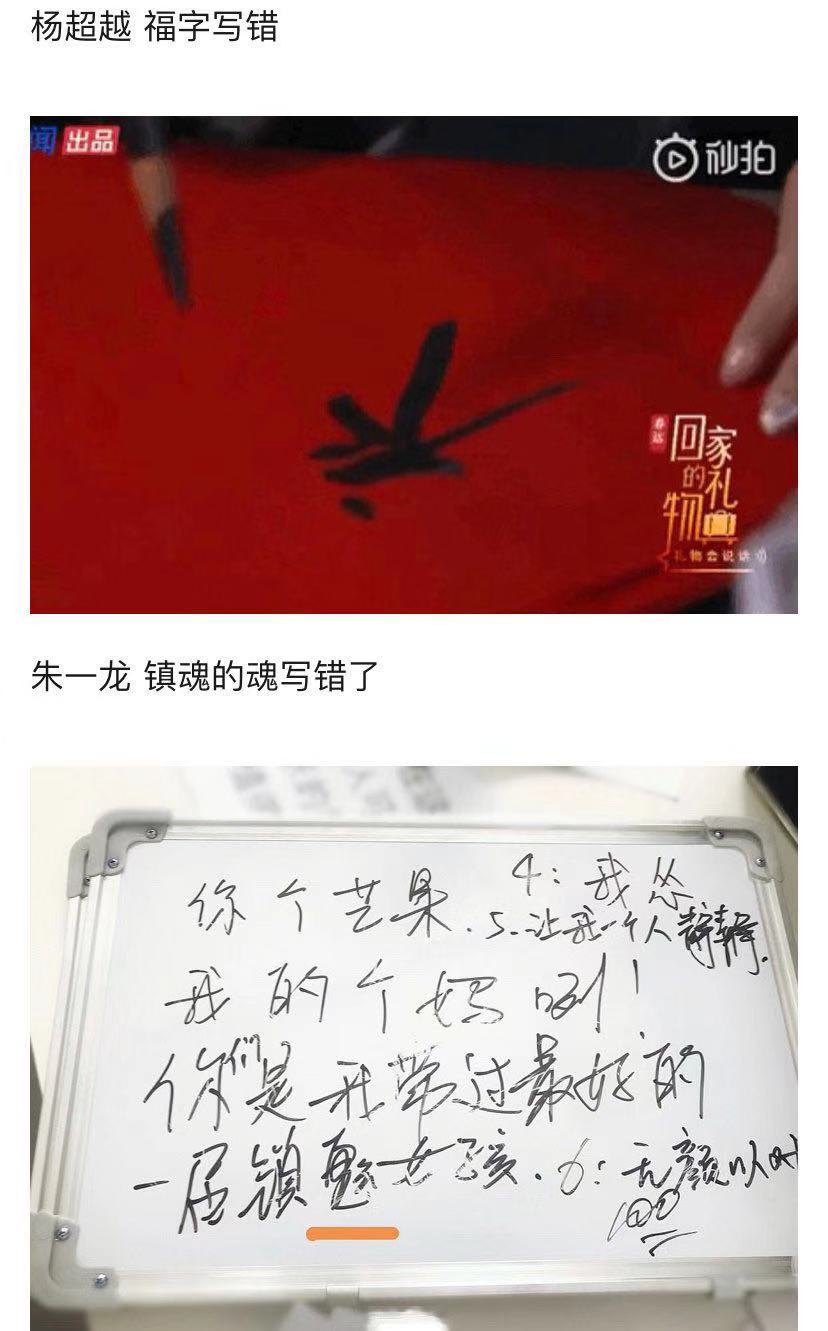 杨超越 福字写错
闻 出品
秒拍
春运
回家
的礼
物
礼物会说话
朱一龙 镇魂的魂写错了
你个艺果.
4：我怂
5.让我一个人静静.
我的个妈咧！
你们是我带过最好的
一届镇魂女孩.
6：无颜以对
100